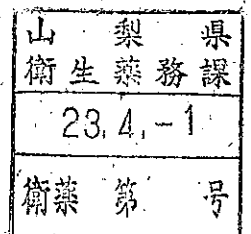 山梨県
衛生薬務課
23.4.-1
衛薬第 号